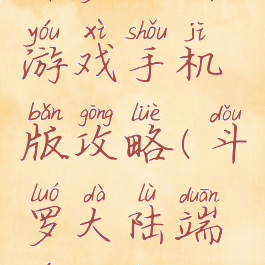 yóu xì shǒu jī
游戏手机
bǎn gōng lüè dǒu
版攻略(斗
luó dà lù duān
罗大陆端